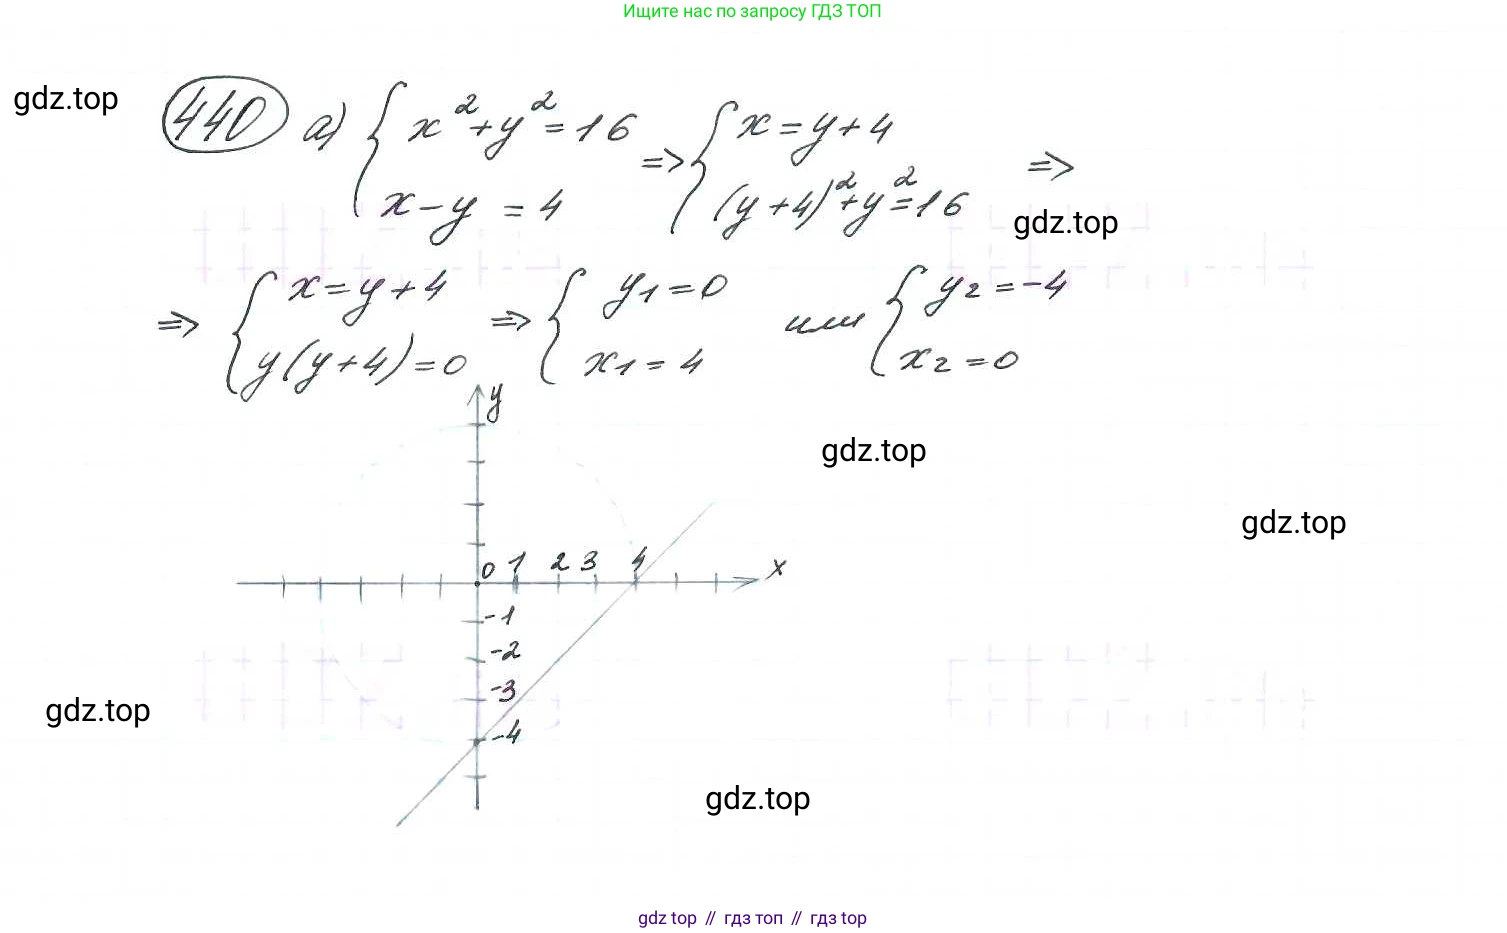 Ищите нас по запросу ГДЗ ТОП
gdz.top
440 а) { x² + y² = 16
x - y = 4
=> { x = y + 4
(y + 4)² + y² = 16
=>
gdz.top
=> { x = y + 4
y(y + 4) = 0
=> { y₁ = 0
x₁ = 4
или { y₂ = -4
x₂ = 0
y
gdz.top
gdz.top
0 1 2 3 4 x
-1
-2
-3
-4
gdz.top
gdz.top
gdz top // гдз топ // гдз top